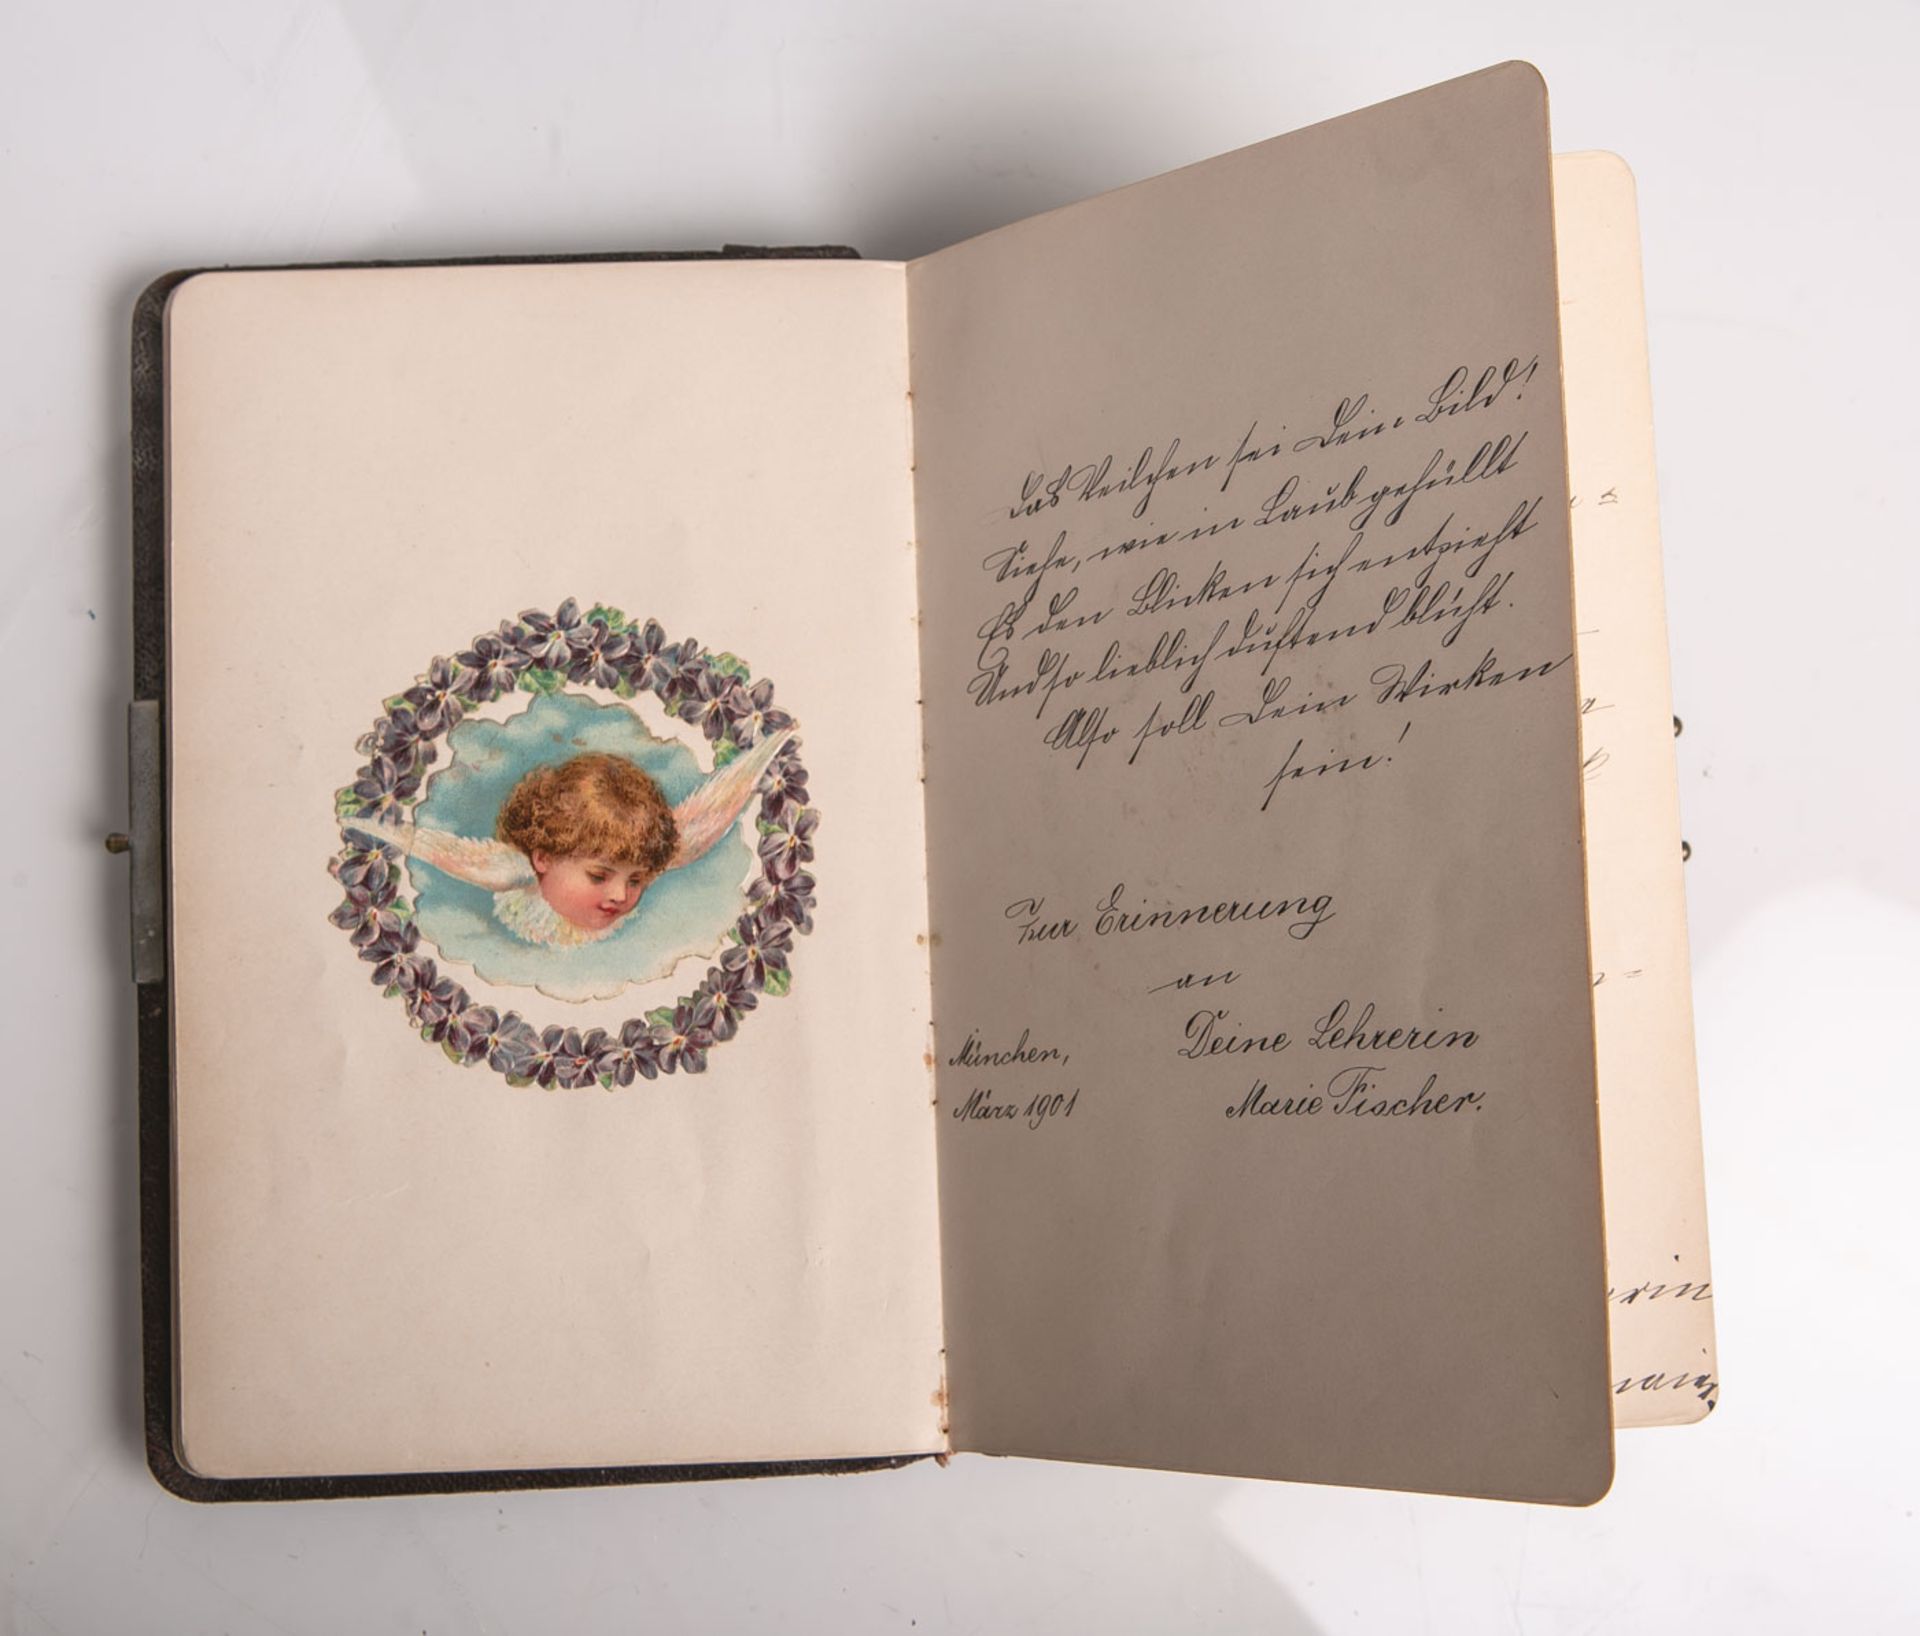 Das Veilchen sei Dein Bild!
Siehe, wie in Laub gehüllt
Es den Blicken sich entzieht
Und so lieblich duftend blüht.
Also soll Dein Wirken
sein!
Zur Erinnerung
an
Deine Lehrerin
Marie Fischer.
München,
März 1901